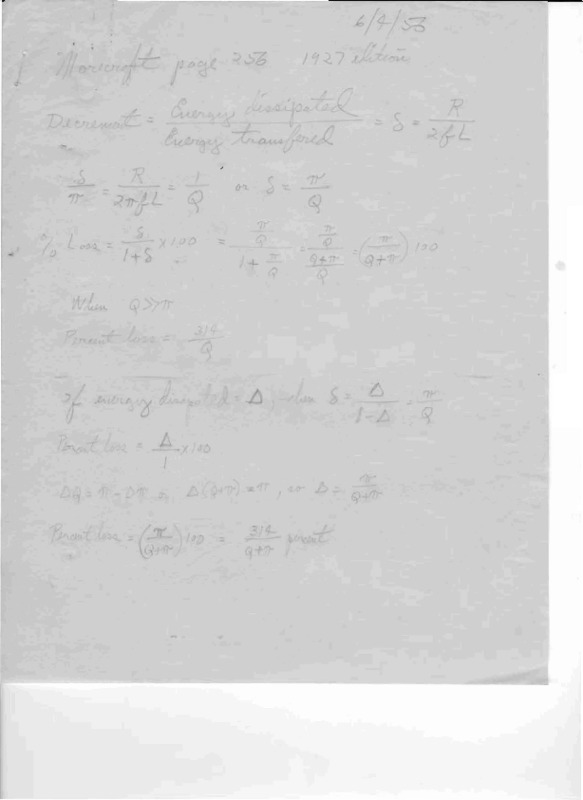 6/4/56
Morecroft page 256 1927 edition
Decrement = Energy dissipated / Energy transfered = δ = R / 2fL
δ/π = R/2πfL = 1/Q or δ = π/Q
% Loss = δ/(1+δ) × 100 = (π/Q)/(1+π/Q) = (π/Q)/((Q+π)/Q) = (π/(Q+π)) 100
When Q>>π
Percent loss = 314/Q
If energy dissipated = Δ, then δ = Δ/(1-Δ) = π/Q
Percent loss = Δ/1 × 100
ΔQ = π - Δπ Δ(Q+π) = π, or Δ = π/(Q+π)
Percent loss = (π/(Q+π)) 100 = 314/(Q+π) percent